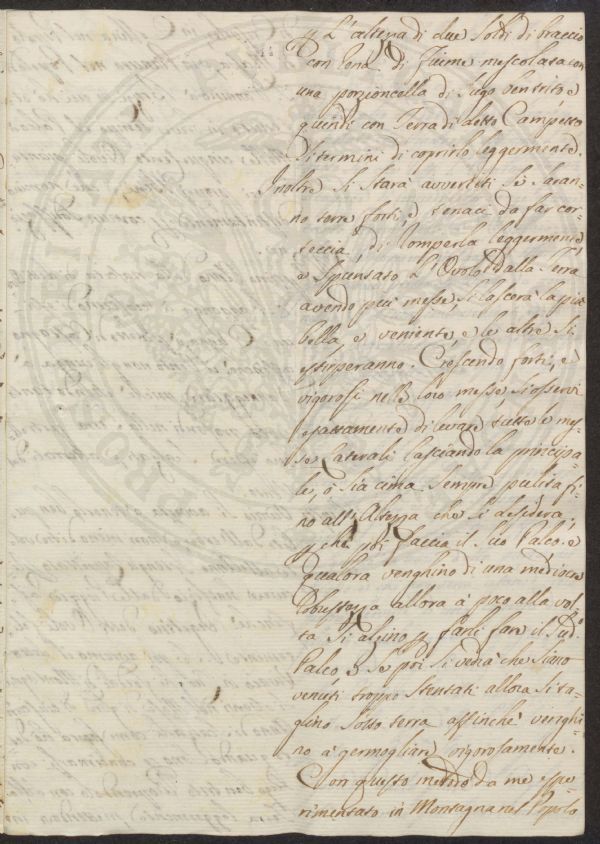 p. L'altezza di due Soldi di braccio
con lena di fiume mescolata con
una porzioncella di Sugo ventrito e
quindi con Terra di detto Campetto
Si termini di coprirlo leggermente.
Inoltre Si starà avvertiti Se saran=
no terre forti, e tenaci da far cor=
teccia, di romperla leggermente,
e Spuntato L'Ovolo dalla Terra
avendo più messe, Si lascerà la più
bella, e veniente, e le altre Si
estirperanno. Crescendo forti, e
vigorosi nelle loro messe, Si osservi
esattamente di levare tutte le mes=
se laterali lasciando la principa=
le, o sia cima Sempre pulita fi=
no all'Altezza che Si desidera,
p. che poi faccia il Suo Palco. e
qualora venghino di una mediocre
Robustezza allora à poco alla vol=
ta Si alzino p. farli fare il Sud.o
Palco, e Se poi Si vedrà che Siano
venuti troppo Stentati allora Si ta=
glino Sotto terra affinchè venghi=
no à germogliare vigorosamente.
Con questo metodo da me espe=
rimentato in Montagna nel Popolo